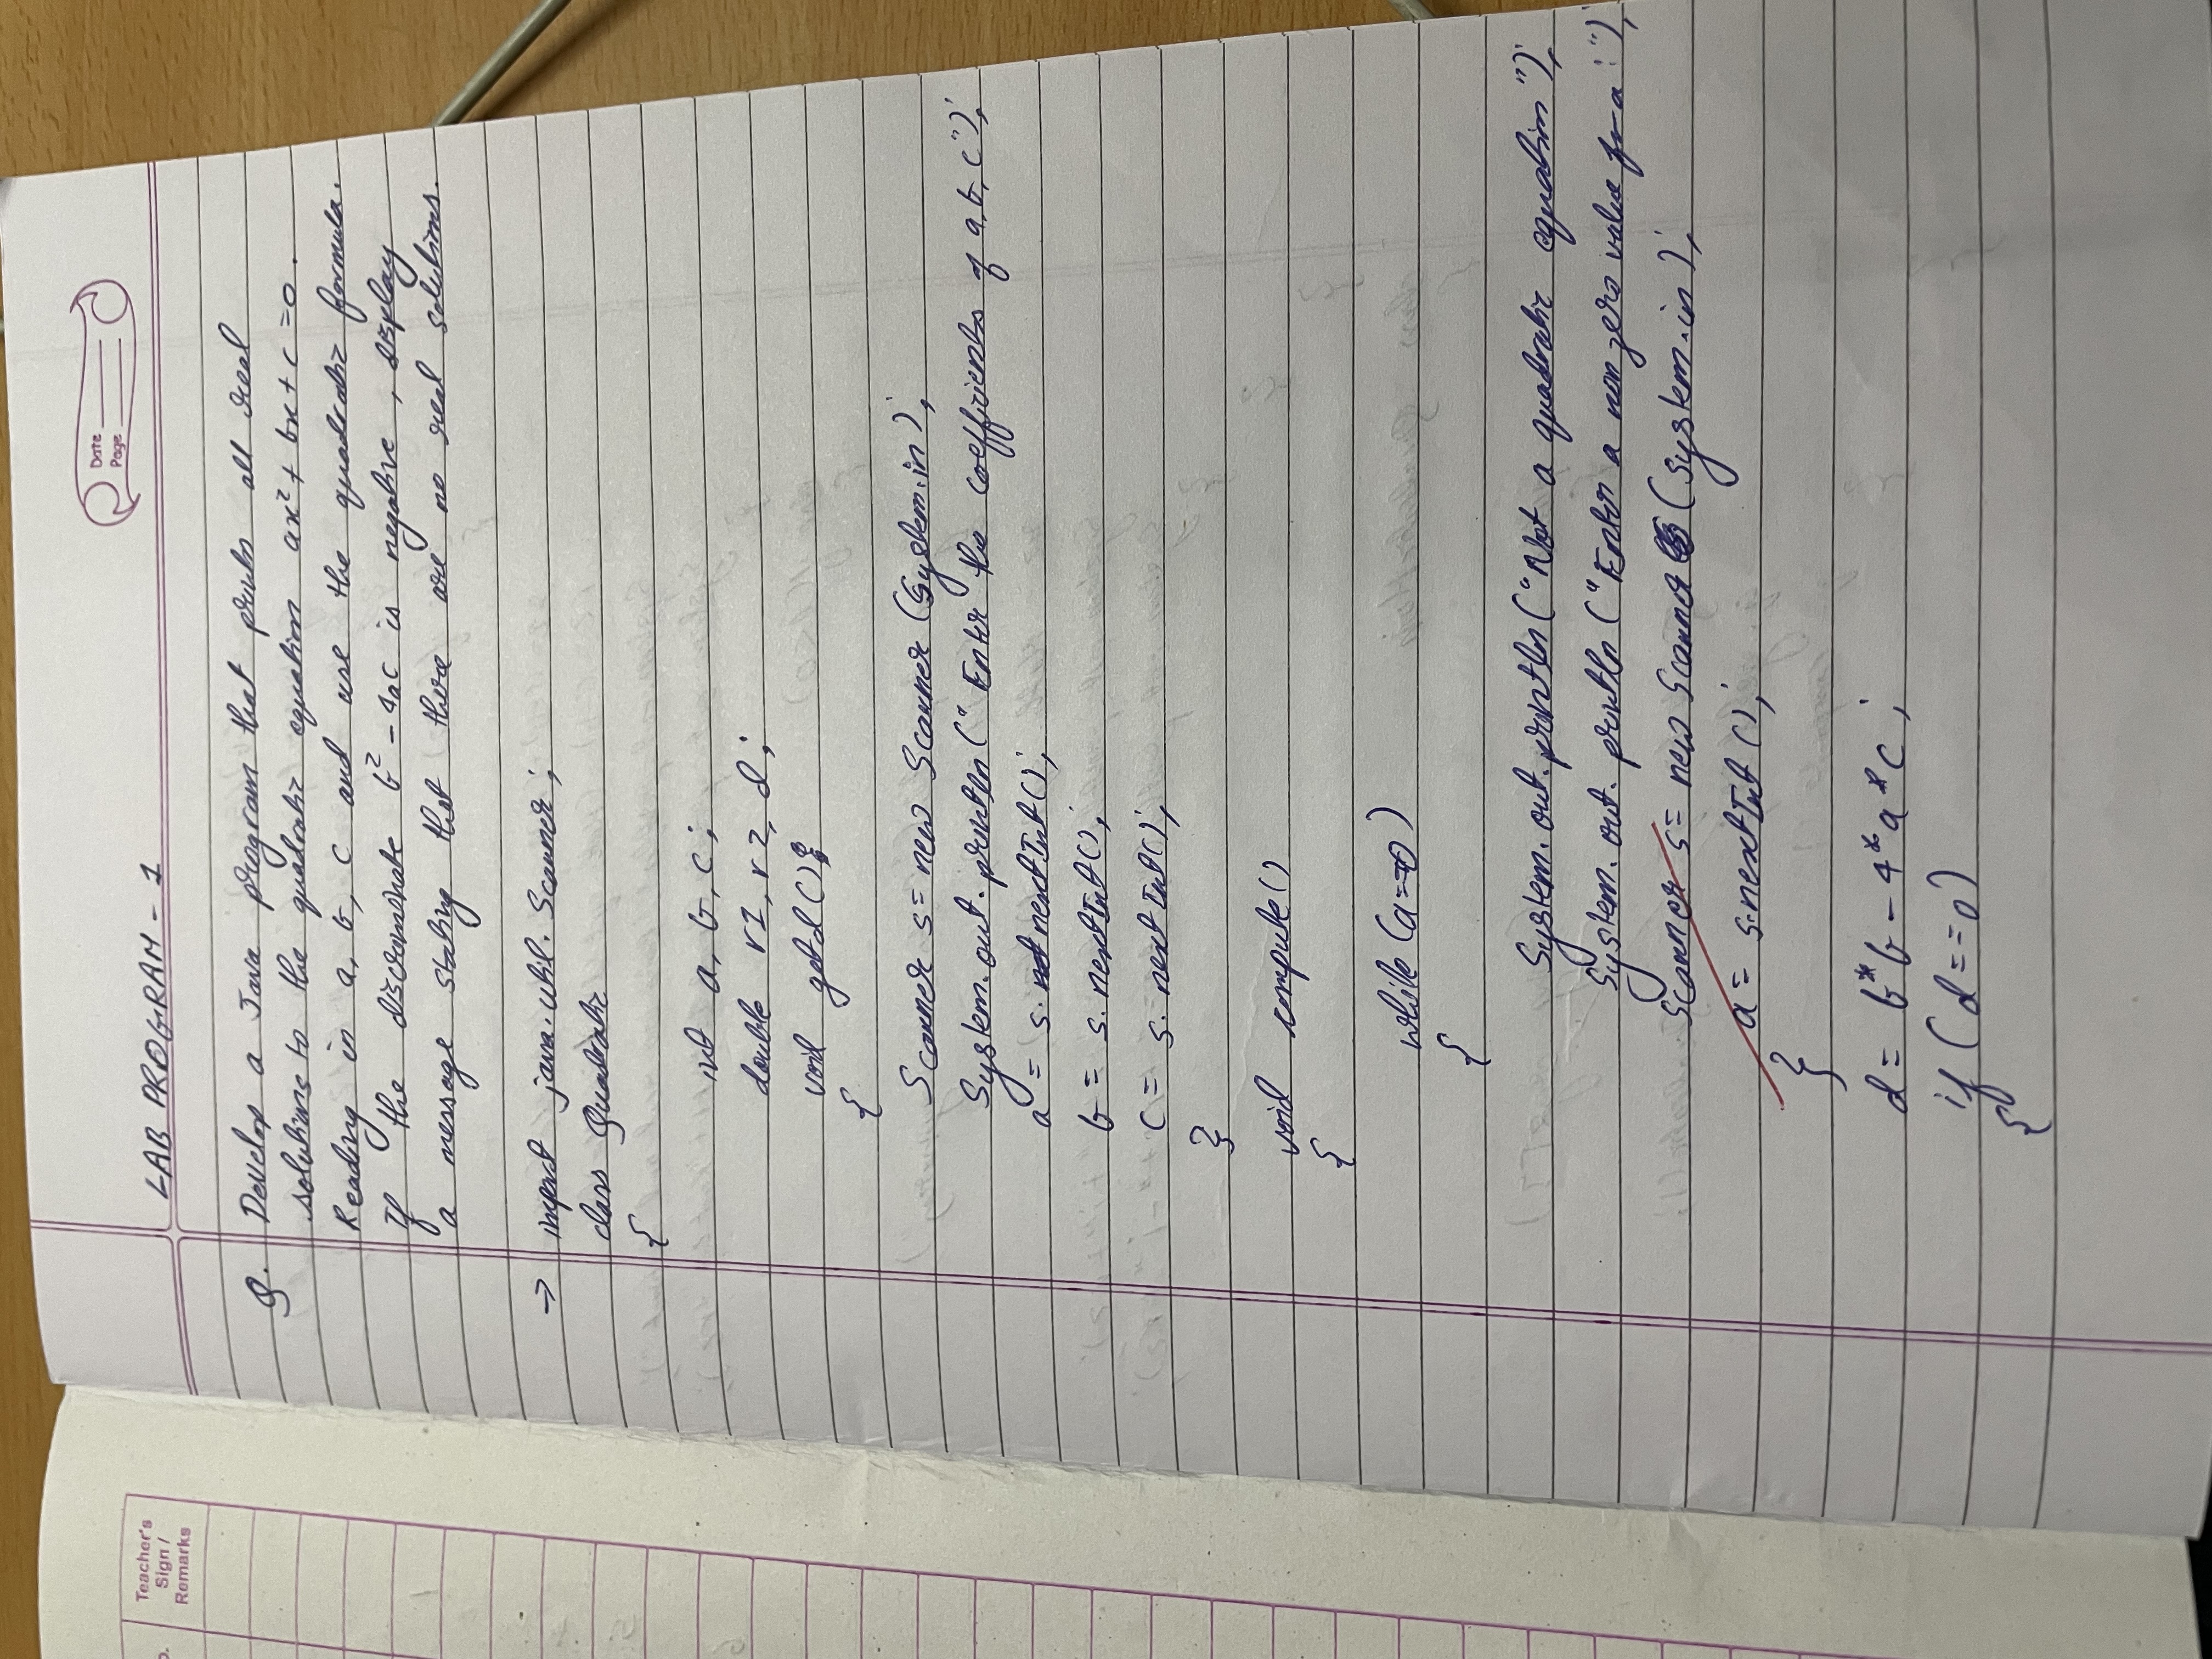 Teacher's
Sign /
Remarks
Date
Page
LAB PROGRAM - 1
Q. Develop a Java program that prints all real
solutions to the quadratic equation ax² + bx + c = 0.
Reading in a, b, c and use the quadratic formula.
If the discriminate b² - 4ac is negative, display
a message stating that there are no real solutions.
→ import java.util.Scanner;
class Quadratic
{
int a, b, c;
double r1, r2, d;
void getd()
{
Scanner s = new Scanner (System.in);
System.out.println (" Enter the coefficients of a, b, c");
a = s. nextInt();
b = s. nextInt();
c = s. nextInt();
}
void compute()
{
while (a==0)
{
System.out.println ("Not a quadratic equation");
System.out.println ("Enter a non zero value for a :");
Scanner s = new Scanner (System.in);
a = s.nextInt ();
}
d = b*b - 4*a*c ;
if (d==0)
{